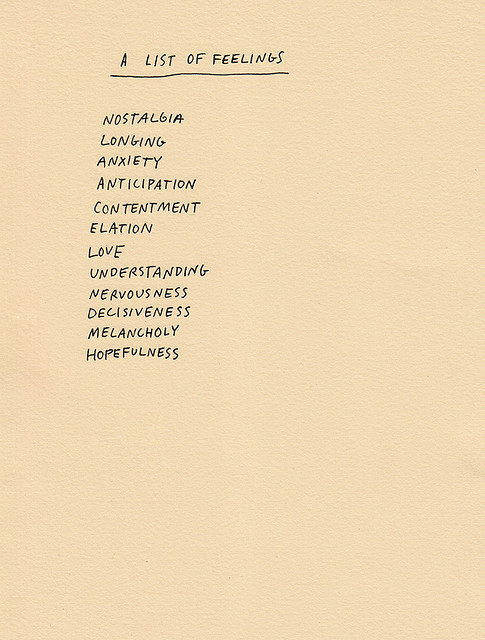 A LIST OF FEELINGS
NOSTALGIA
LONGING
ANXIETY
ANTICIPATION
CONTENTMENT
ELATION
LOVE
UNDERSTANDING
NERVOUSNESS
DECISIVENESS
MELANCHOLY
HOPEFULNESS